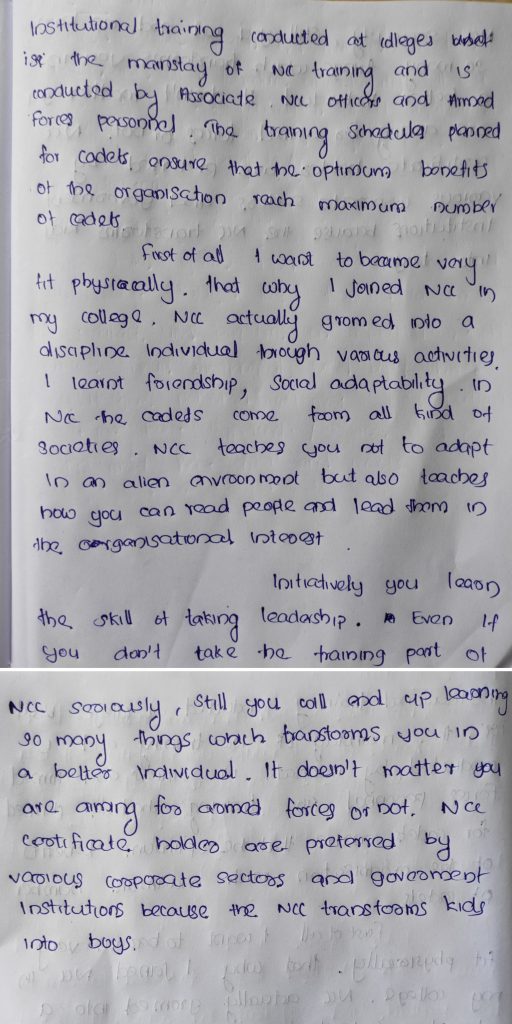 Institutional training conducted at colleges
is the mainstay of NCC training and is
conducted by Associate NCC officers and Armed
Forces personnel. The training schedules planned
for cadets ensure that the optimum benefits
of the organisation reach maximum number
of cadets
First of all I want to became very
fit physically. That why I joined NCC in
my college. NCC actually gromed into a
discipline individual through various activities.
I learnt foriendship, social adaptability. In
NCC the cadets come from all kind of
societies. NCC teaches you not to adapt
in an alien environment but also teaches
how you can read people and lead them in
the organisational interest
Initiatively you learn
the skill of taking leadership. Even if
you don't take the training part of
NCC seriously, still you will end up learning
so many things which transforms you in
a better individual. It doesn't matter you
are aiming for armed forces or not. NCC
certificate holder are preferred by
various corporate sectors and goverment
Institutions because the NCC transforms kids
into boys.